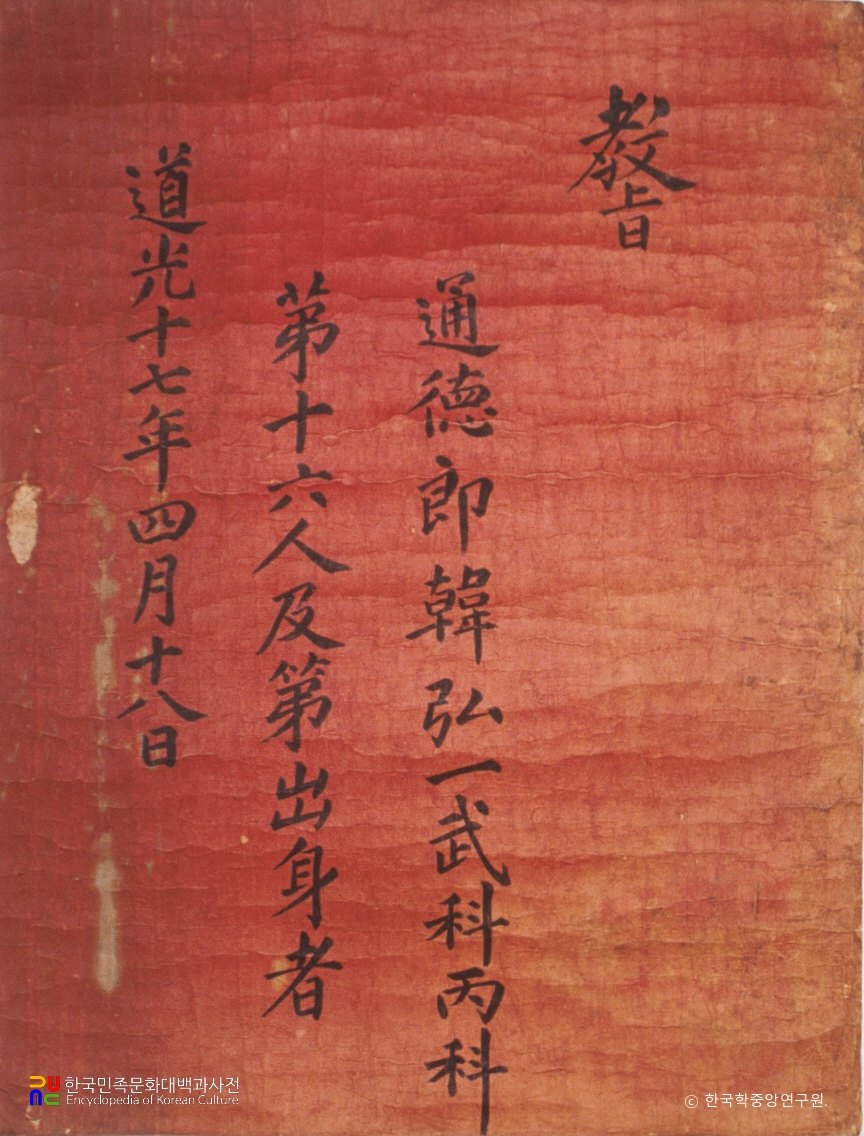 教旨
通德郎韓弘一武科丙科
第十六人及第出身者
道光十七年四月十八日
한국민족문화대백과사전
Encyclopedia of Korean Culture
ⓒ 한국학중앙연구원.